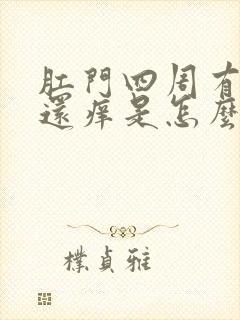 肛門四周有
還癢是怎麼
樸貞雅